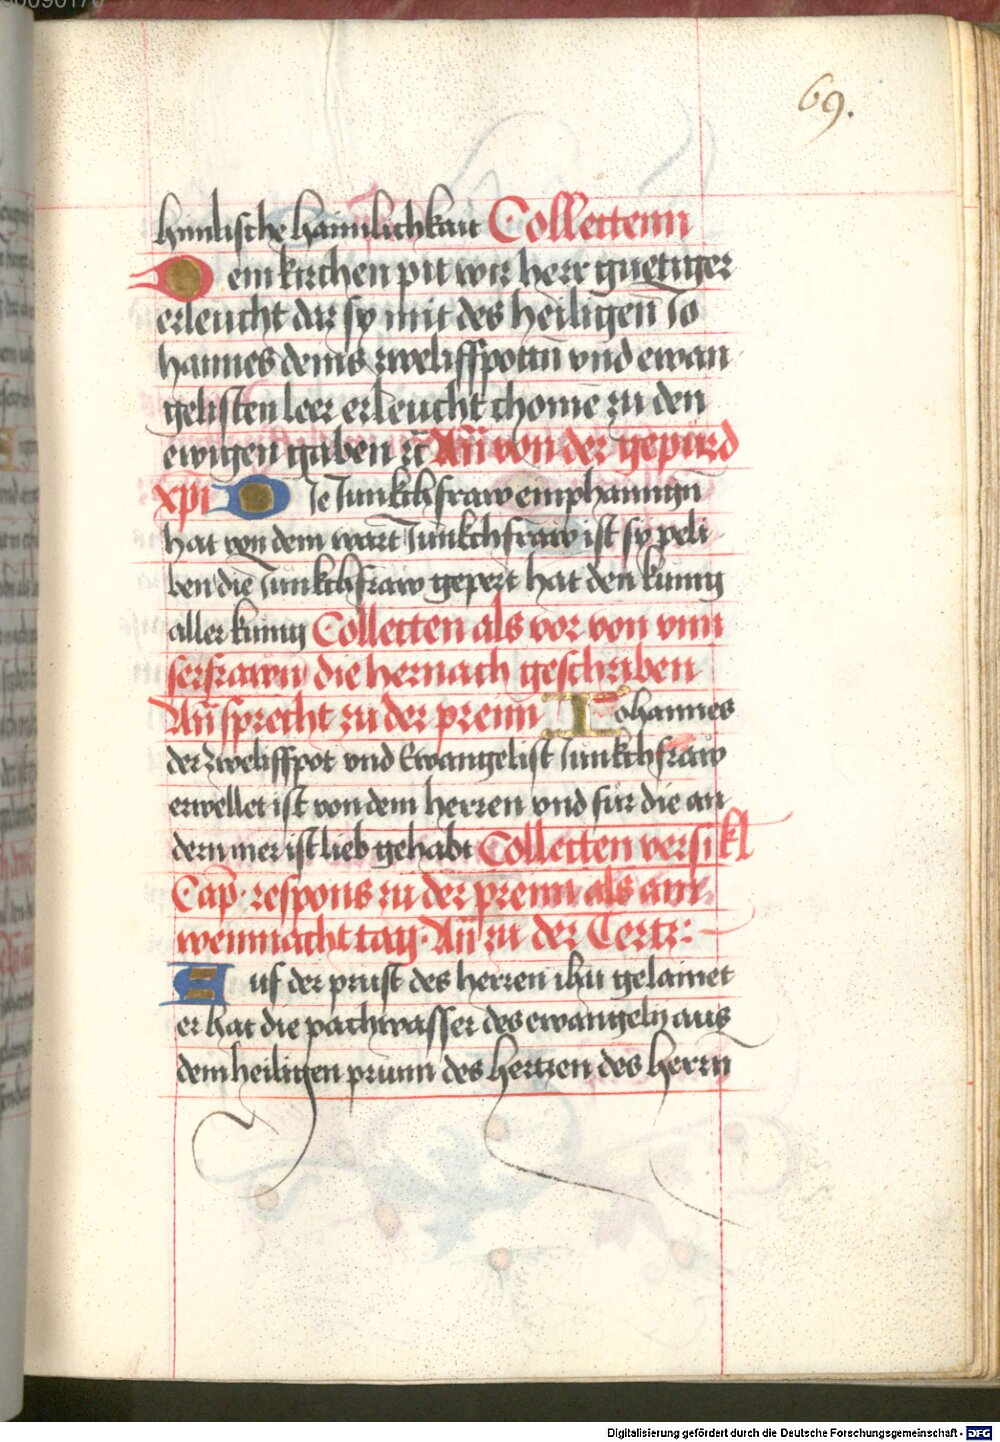 69.
himlische haimlichkait Collectenn
Dein kirchen pit wir herr guetiger
erleucht das sy mit des heiligen Jo
hannes deins zweliffpotn̄ vnd ewan
gelisten leer erleucht chome zu den
ewigen gaben ꝛc̄ Añ von der gepurd
xp̄i Die Junkchfraw emphanngn̄
hat von dem wart Junkchfraw ist sy peli
ben die Junkchfraw gepert hat den kunig
aller kunig Collecten als vor von vnn
serfrawn die hernach geschriben
Añ sprecht zu der preim Johannes
der zweliffpot vnd Ewangelist Junkchfraw
erwellet ist von dem herren vnd für die an
dern mer ist lieb gehabt Collecten versikl
Cap̄. respons zu der preim als am
weinnacht tag. Añ zu der Tertz:
Auf der prust des herren ih̄u gelainet
er hat die pachwasser des ewangelij aus
dem heiligen prunn des hertzen des herrn̄
Digitalisierung gefördert durch die Deutsche Forschungsgemeinschaft - DFG